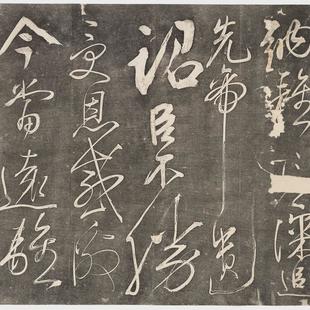 納雅深追
先帝遺
詔臣不勝
受恩感激
今當遠離